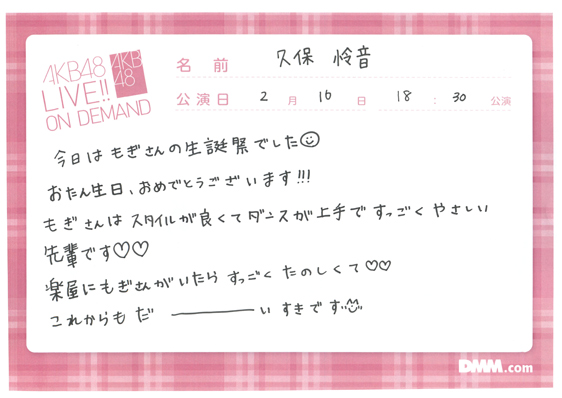 AKB48
LIVE!!
ON DEMAND
AKB
48
名前 久保 怜音
公演日 2月 16日 18:30公演
今日は もぎさんの生誕祭でした☺
おたん生日、おめでとうございます!!!
もぎさんは スタイルが良くてダンスが上手で すっごく やさしい
先輩です♡♡
楽屋にもぎさんがいたら すっごく たのしくて♡♡
これからも だ ―――――い すきです
DMM.com